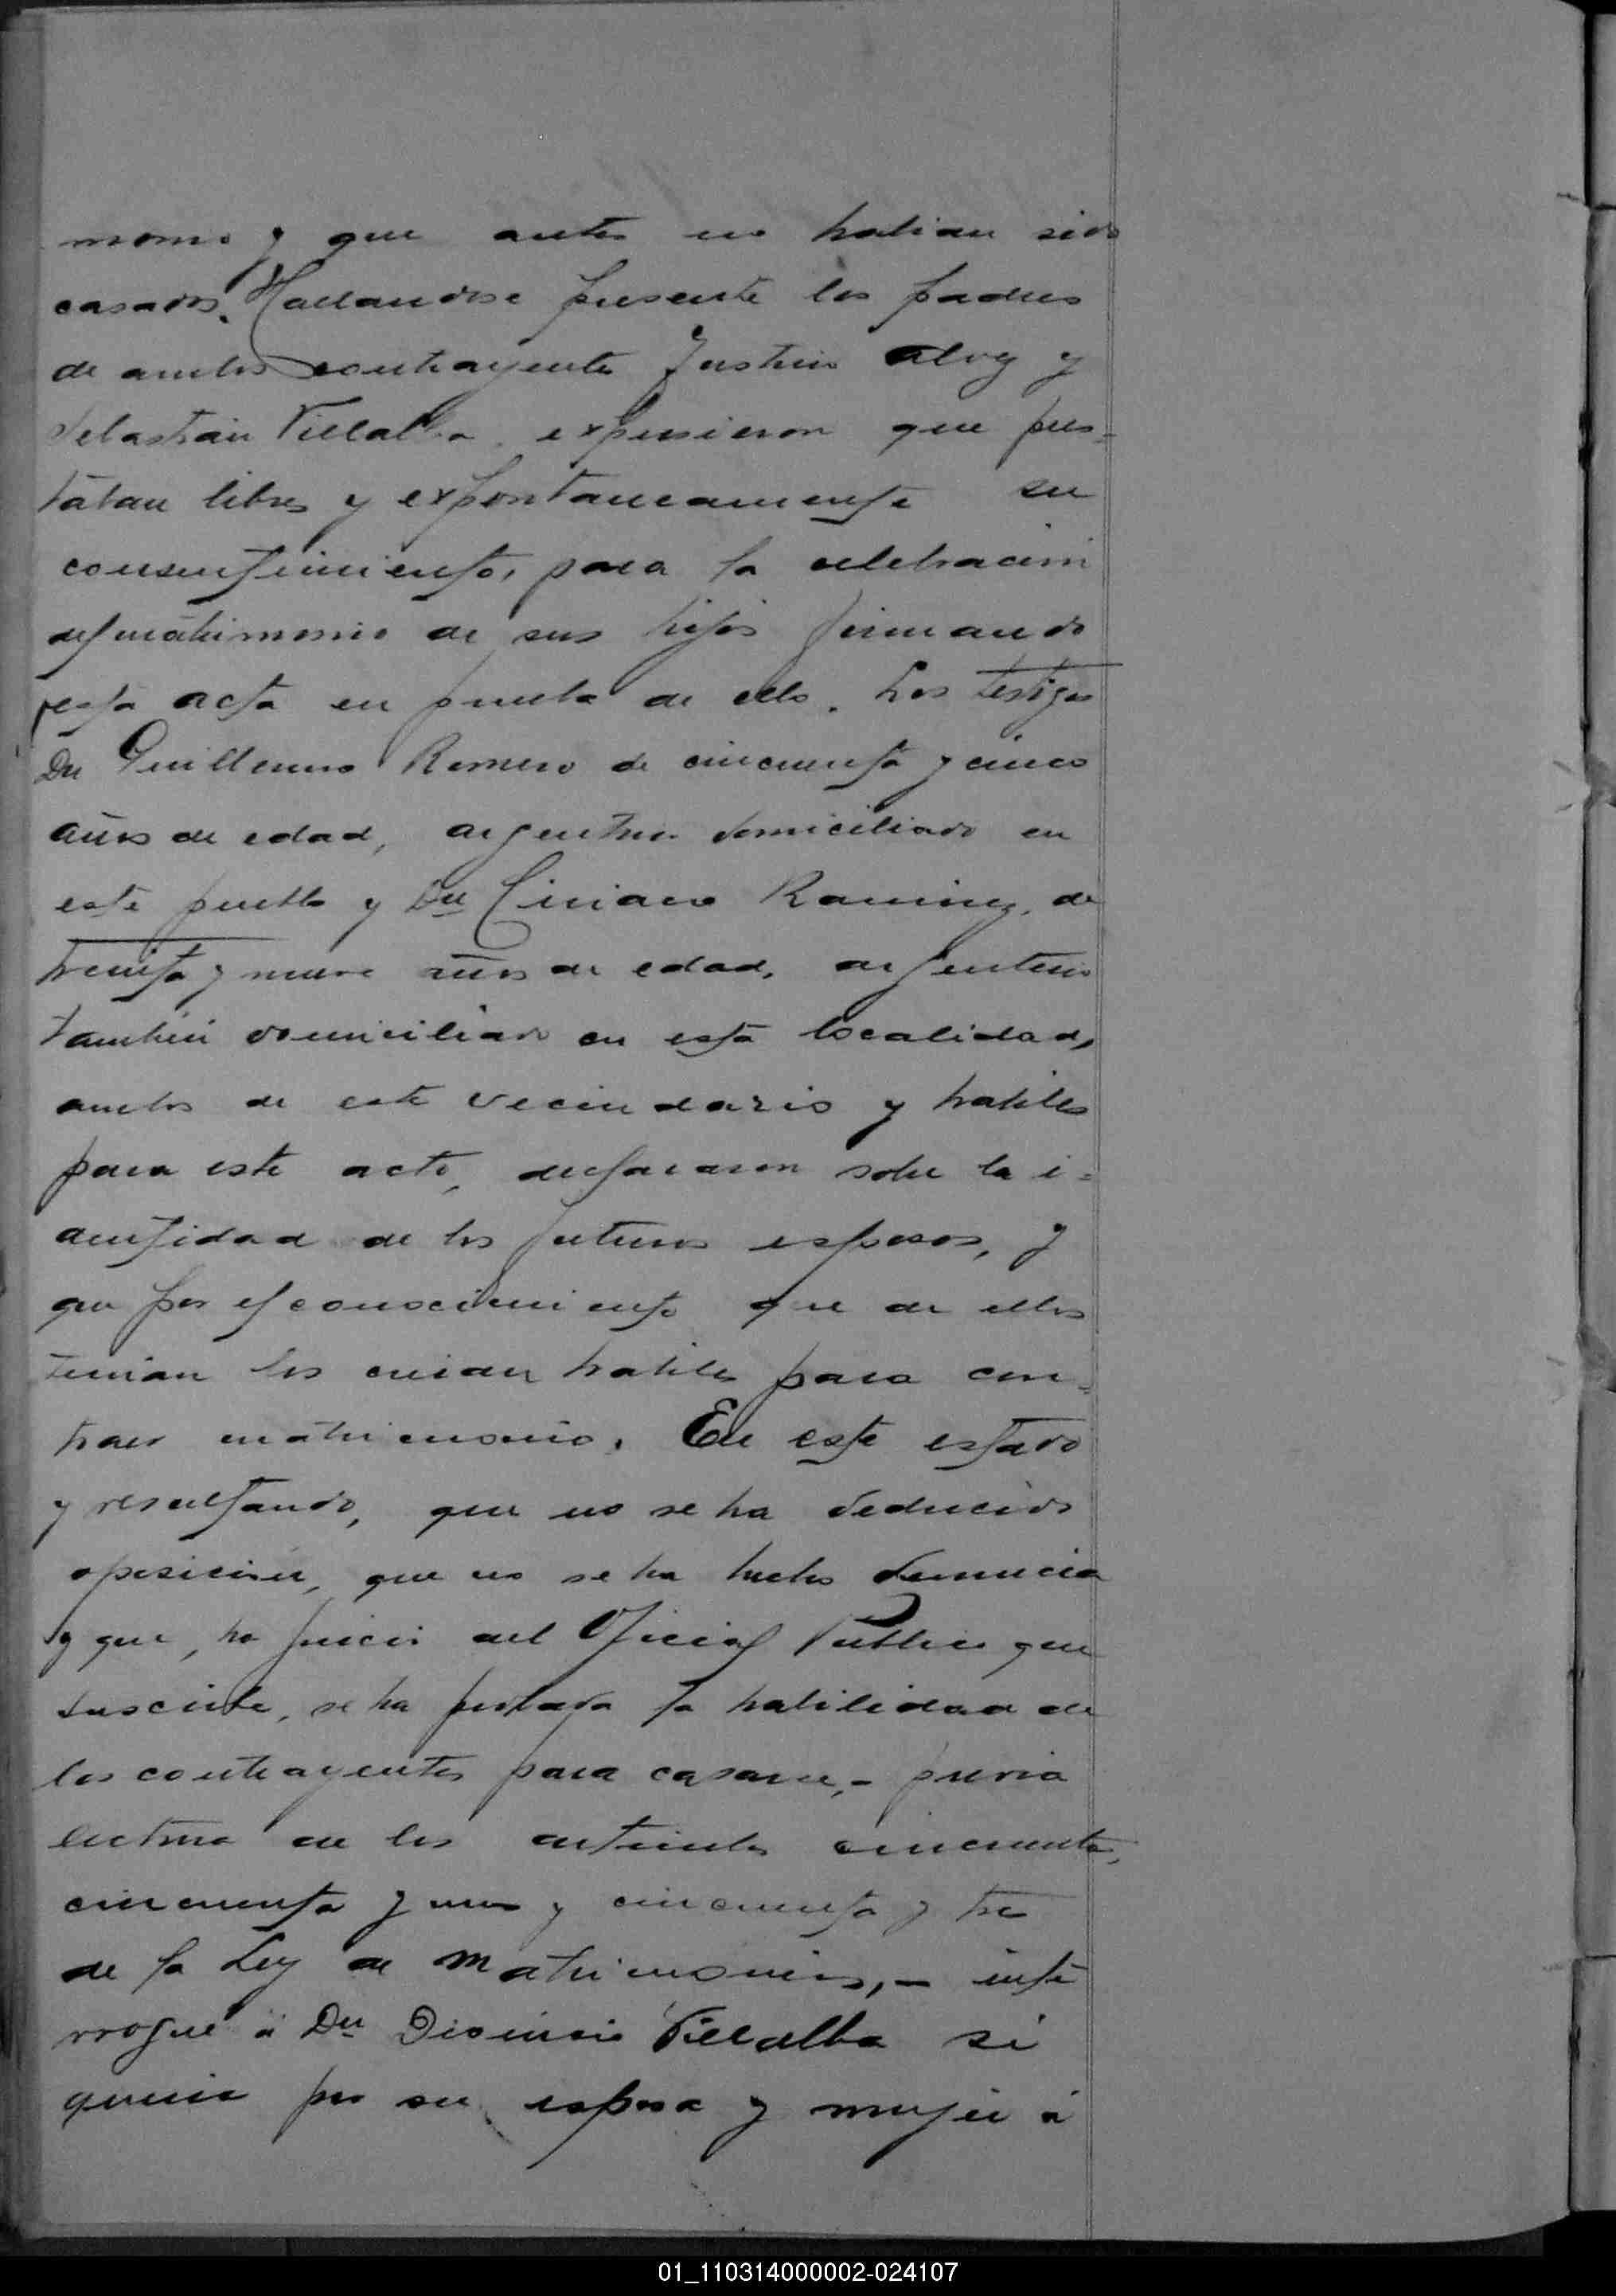 monio y que antes no habian sido
casados. Hallandose presente los padres
de ambos contrayente Justino Aloy y
Sebastián Villalba expusieron que pres-
tában libre y expontaneamente su
consentimiento, para la celebración
del matrimonio de sus hijos firmando
esta acta en prueba de ello. Los testigos
Dn Guillermo Romero de cincuenta y cinco
años de edad, argentino domiciliado en
este pueblo y Dn Ciriaco Ramirez, de
treinta y nueve años de edad, argentino
también domiciliado en esta localidad,
ambos de este vecindario y habiles
para este acto, declararon sobre la i-
dentidad de los futuros esposos, y
que por el conocimiento que de ellos
tenian los creian habiles para con-
traer matrimonio. En este estado
y resultando, que no se ha deducido
oposición, que no se ha hecho denuncia
y que, ha juicio del Oficial Publico que
suscribe, se ha probado la habilidad de
los contrayentes para casarse,- previa
lectura de los articulos cincuenta,
cincuenta y uno y cincuenta y tres
de la Ley de Matrimonios,- inte
rrogué á Dn Dionisio Villalba si
queria por su esposa y mujer á
01_110314000002-024107